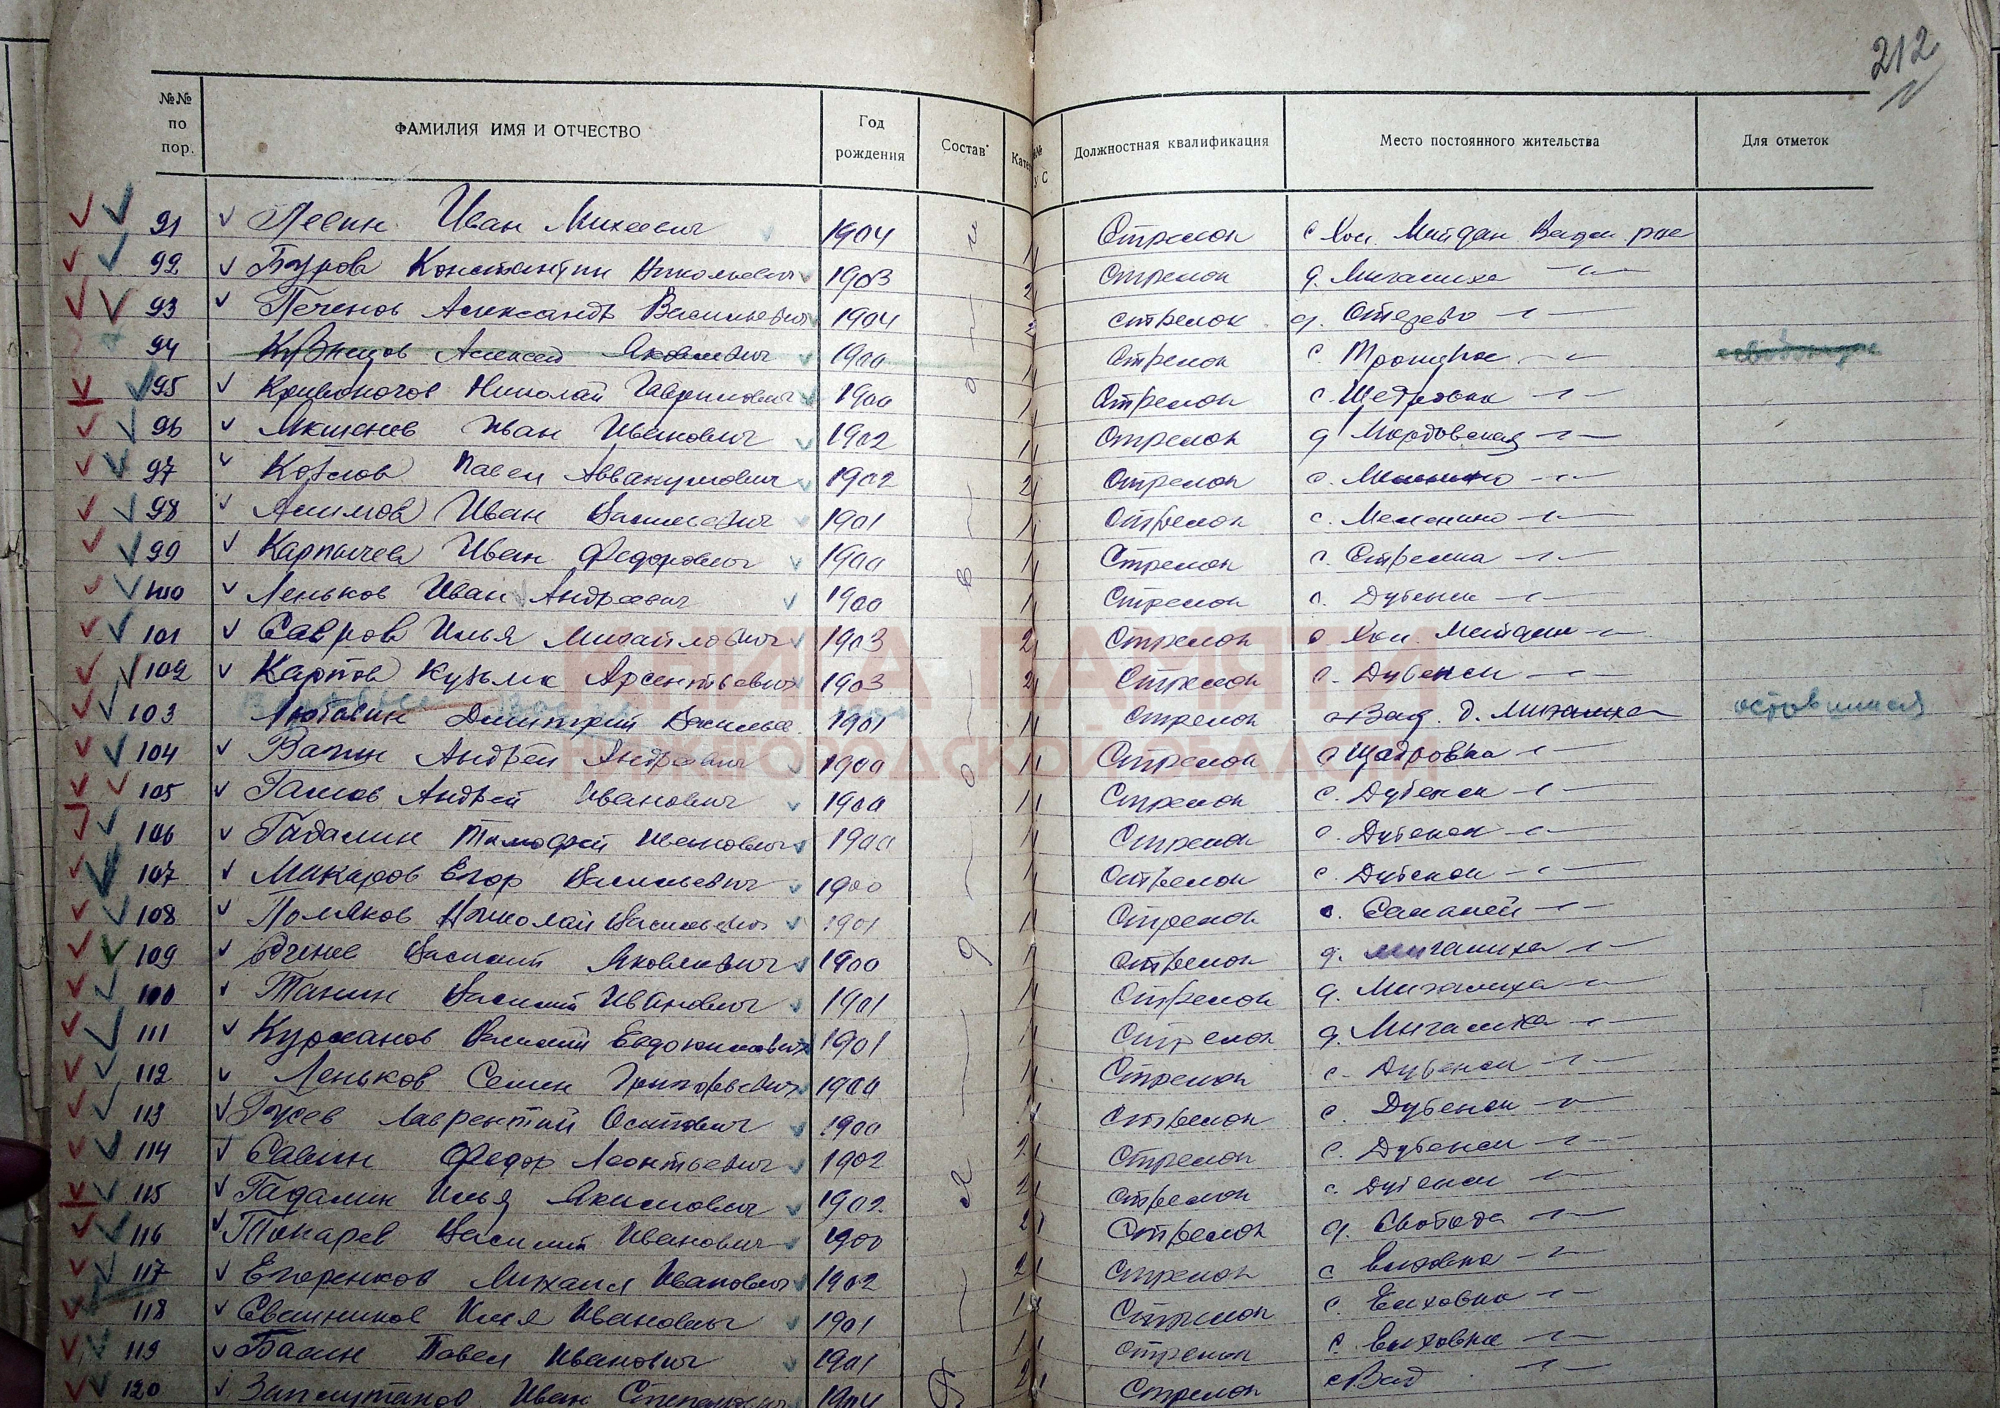 212
№№ по пор. ФАМИЛИЯ ИМЯ И ОТЧЕСТВО Год рождения Состав Должностная квалификация Место постоянного жительства Для отметок
91 Левин Иван Михеевич 1904 Стрелок с Хол. Майдан Вадск. рае
92 Буров Константин Николаевич 1903 2 Стрелок д. Мигалиха —"—
93 Печенов Александр Васильевич 1904 2 стрелок д. Отезево —"—
94 Кузнецов Алексей Яковлевич 1900 1 Стрелок с. —"—
95 Кривоногов Николай Гаврилович 1900 1 Стрелок с. Щедровка —"—
96 Якшенев Иван Иванович 1902 Стрелок д Мордовская —"—
97 Козлов Павел Аввакумович 1902 2 Стрелок с. —"—
98 Асимов Иван Васильевич 1901 1 Стрелок с. —"—
99 Карпычев Иван Федорович 1900 1 Стрелок с. Стрелка —"—
100 Леньков Иван Андреевич 1900 1 Стрелок с. Дубенки —"—
101 Савров Илья Михайлович 1903 2 Стрелок с Хол. Майдан —"—
102 Карпов Кузьма Арсентьевич 1903 2 Стрелок с. Дубенки —"—
103 Лютавин Дмитрий Василье 1901 Стрелок с Вад. д. Мигалиха оставшийся
104 Вагин Андрей Андреевич 1900 1 Стрелок с Щедровка —"—
105 Галков Андрей Иванович 1900 1 Стрелок с. Дубенки —"—
106 Гадалин Тимофей Иванович 1900 1 Стрелок с. Дубенки —"—
107 Макаров Егор Васильевич 1900 1 Стрелок с. Дубенки —"—
108 Поляков Николай Васильевич 1901 1 Стрелок с. Салалей —"—
109 Василий Яковлевич 1900 1 Стрелок д. Мигалиха —"—
100 Танин Василий Иванович 1901 1 Стрелок д. Мигалиха —"—
111 Курханов Василий Евдокимович 1901 1 Стрелок д. Мигалиха —"—
112 Леньков Семен Григорьевич 1900 1 Стрелок с. Дубенки —"—
113 Гусев Лаврентий Осипович 1900 1 Стрелок с. Дубенки —"—
114 Савин Федор Леонтьевич 1902 2 Стрелок с. Дубенки —"—
115 Гадалин Илья Якимович 1902 2 Стрелок с. Дубенки —"—
116 Токарев Василий Иванович 1900 Стрелок д. Свобода —"—
117 Егоренков Михаил Иванович 1902 2 Стрелок с Елховка —"—
118 Свешников Илья Иванович 1901 1 Стрелок с. Елховка —"—
119 Балин Павел Иванович 1901 1 Стрелок с. Елховка —"—
120 Иван Степанович 1904 2 Стрелок с Вад —"—
КНИГА ПАМЯТИ
НИЖЕГОРОДСКОЙ ОБЛАСТИ